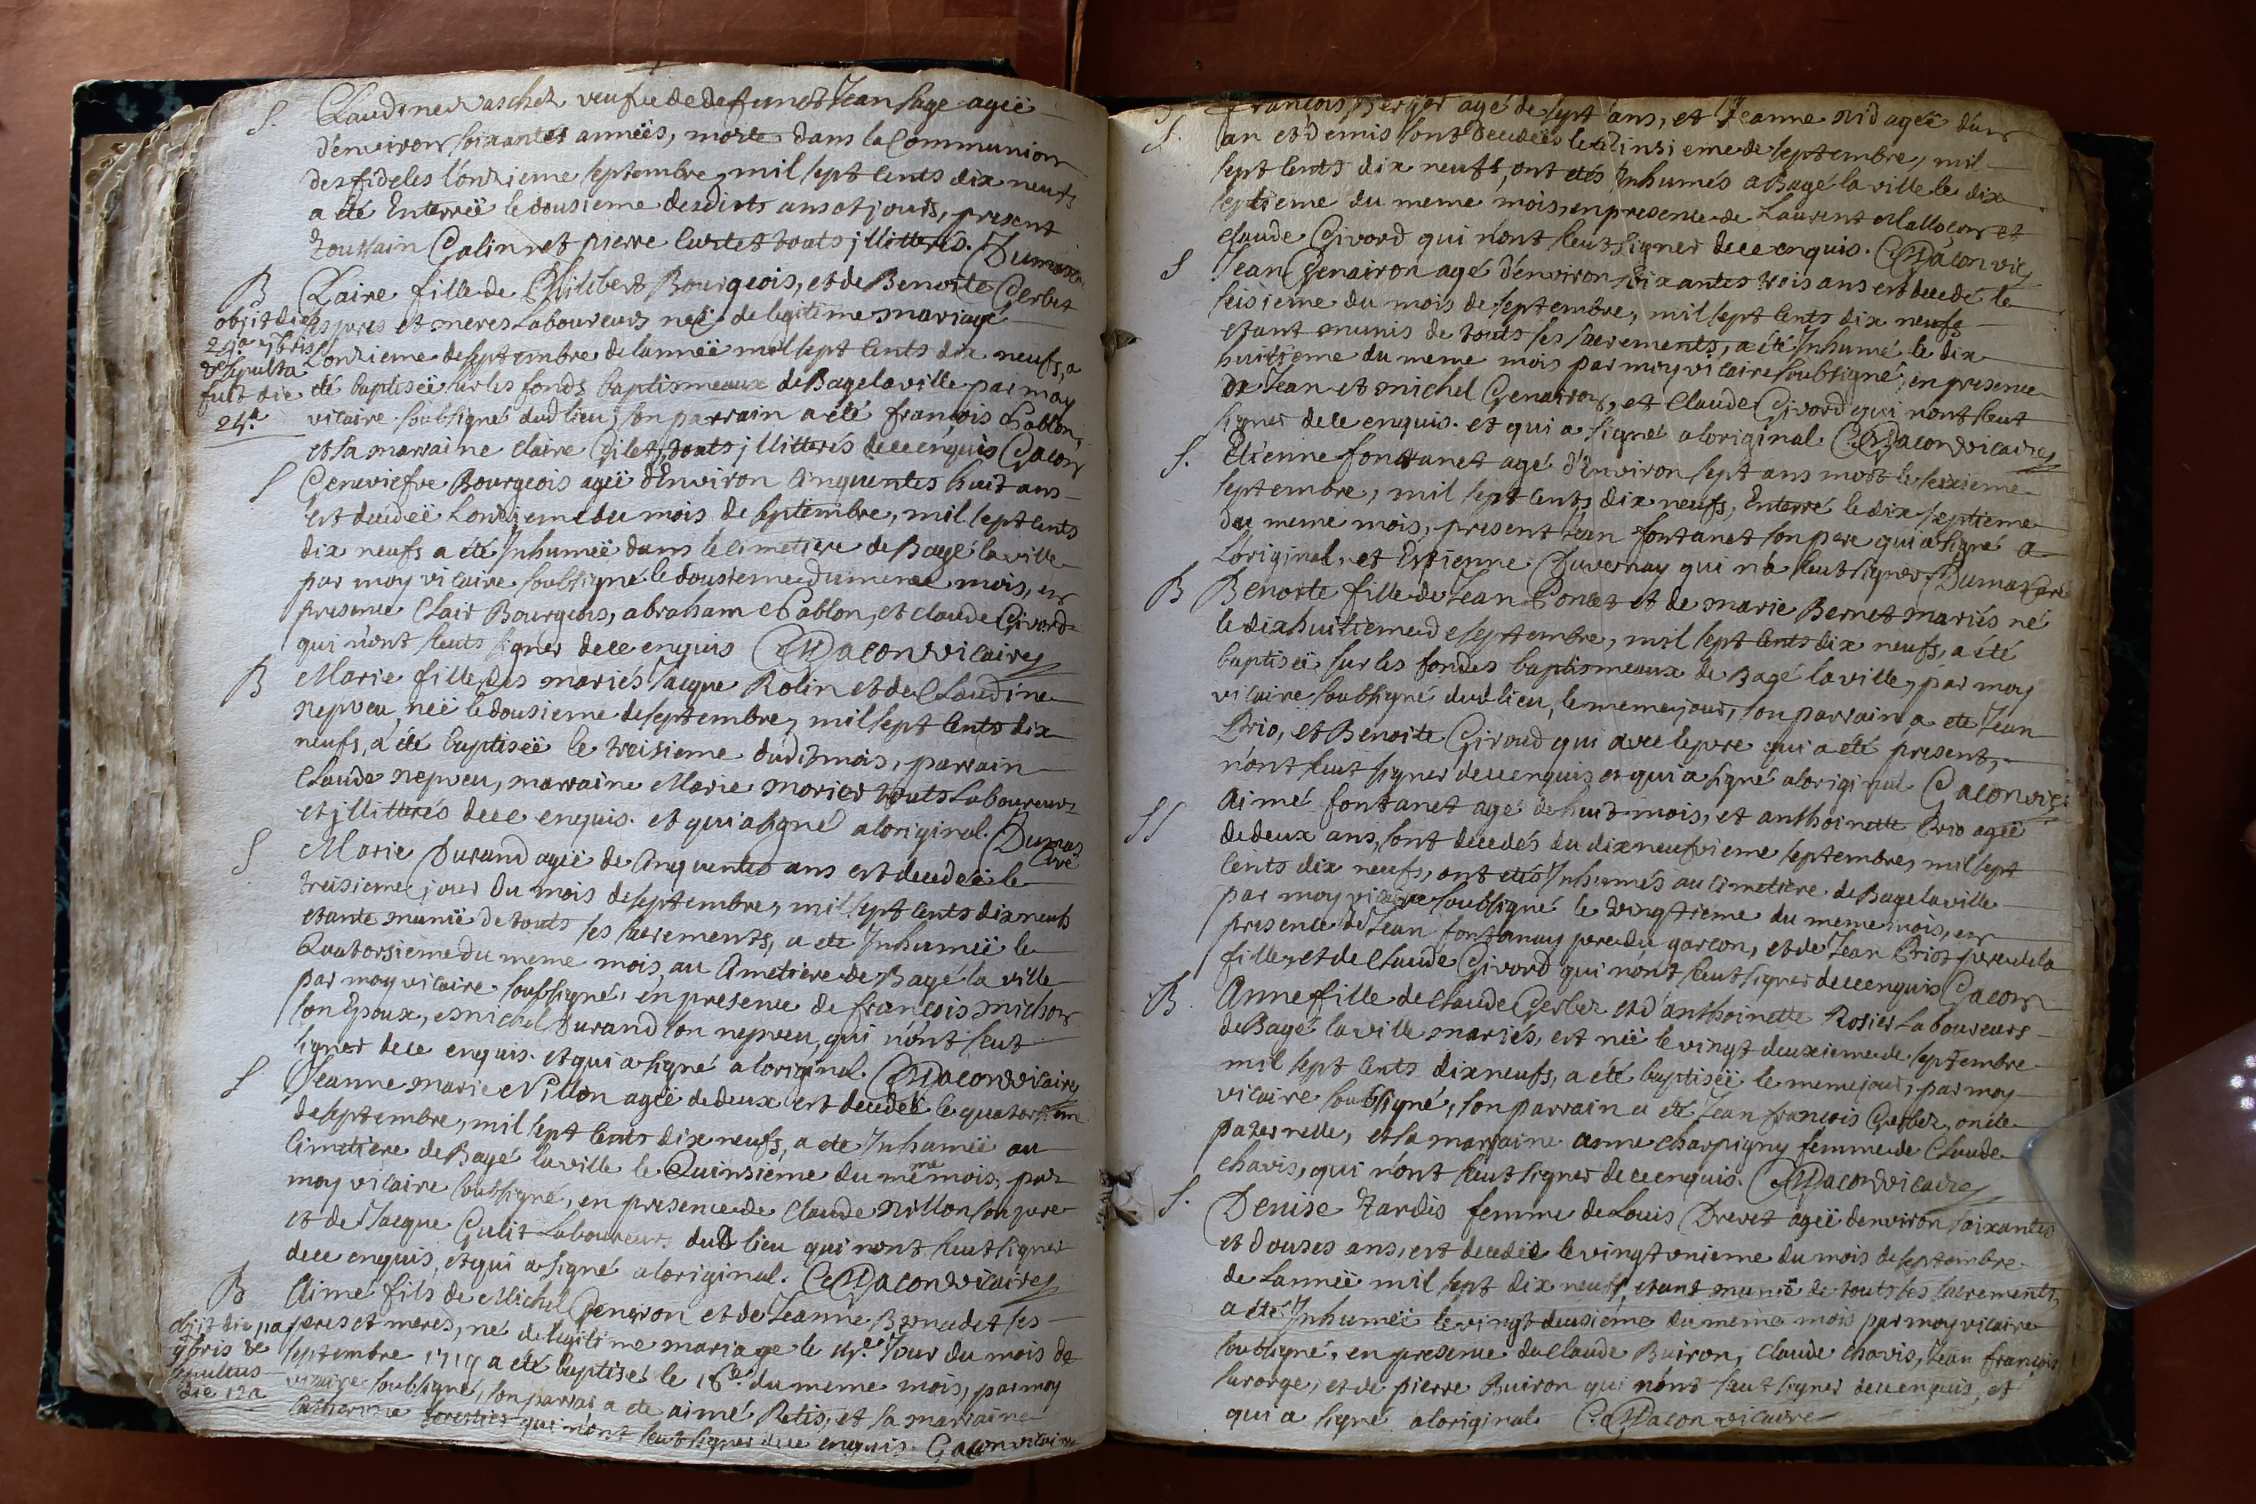 S. Claudine Vaschet veufve de defunct Jean Sage ageë
d'environ soixantes anneës, morte dans la Communion
des fideles l'onzieme septembre, mil sept cents dix neufs
a été Enterreë le dousieme desdits ans et jours, present
toussain Calin et pierre Curtet touts jllitterés. Dumas
B Claire fille de Philibert Bourgeois, et de Benoite Gerbet
ses peres et meres Laboureurs neë de legitime mariage
L'onzieme de septembre de l'anneë mil sept cents dix neufs, a
été baptiseë sur les fonds baptismeaux de Bagé la ville par moy
vicaire soubsigné dud lieu, son parrain a été françois Pablon,
et sa marraine claire Gilet, touts jllitterés de ce enquis Gacon
obijt die
21a 7bris
& sepulta
fuit die
24.a
S Geneviefve Bourgeois ageë d'Environ Cinquantes huit ans
est decedeë L'onzieme du mois de septembre, mil sept cents
dix neufs a été Inhumeë dans le cimetiere de Bagé la ville
par moy vicaire soubsigné le dousieme du meme mois, en
presence Clair Bourgeois, abraham Pablon, et claude Givord
qui n'ont sceuts signer de ce enquis Gacon vicaire
B Marie fille des mariés Jacque Rolin et de Claudine
Nepveu, neë le dousieme de septembre, mil sept cents dix
neufs, a été baptiseë le treisieme dudit mois, parrain
Claude Nepveu, marraine Marie Morier touts Laboureurs
et jllitterés de ce enquis. et qui a signé a l'original. Dumas
Curé
S Marie Durand ageë de Cinquantes ans est decedeë le
treisieme jour du mois de septembre, mil sept cents dix neufs
etante munië de touts ses sacrements, a été Inhumeë le
Quatorsieme du meme mois, au Cimetiere de Bagé la ville
par moy vicaire soubsigné, en presence de françois michon
son Epoux, michel Durand son nepveu, qui n'ont sceut
signer de ce enquis. et qui a signé a l'original. Gacon vicaire
S Jeanne marie Nillon ageë de deux est decedeë le quatorsiem
de septembre, mil sept cents dix neufs, a été Inhumeë au
Cimetiere de Bagé la ville le Quinsieme du meme mois, par
moy vicaire soubsigné, en presence de Claude Nillon son pere
et de Jacque Gulit Laboureur dud lieu qui n'ont sceut signer
de ce enquis, et qui a signé a l'original. Gacon vicaire
B Aimé fils de Michel Generon et de Jeanne Bernadet ses
peres et meres, né de legitime mariage le 15.e Jour du mois de
septembre 1719 a été baptisé le 16.e du meme mois, par moy
vicaire soubsigné, son parrai a été aimé Retis, et sa marraine
Catherine qui n'ont sceut signer de ce enquis. Gacon vicaire
obijt die 11a
9bris &
sepultus
die 12a
S. françois Berger agé de sept ans, et Jeanne Nid ageë d'un
an et demis sont decedeës le Quinsieme de septembre, mil
sept cents dix neufs, ont étés Inhumés a Bagé la ville le dix
septieme du meme mois, en presence de Laurent Mallacon et
claude Givord qui n'ont sceut signer de ce enquis. Gacon vic
S Jean Genairon agé d'environ soixantes trois ans est decedé le
seisieme du mois de septembre, mil sept cents dix neufs
etant munis de touts ses sacrements, a été Inhumé le dix
huitieme du meme mois par moy vicaire soubsigné, en presence
de Jean et michel Genairon, et Claude Givord qui n'ont sceut
signer de ce enquis. et qui a signé a l'original. Gacon vicaire
S. Etienne fontanet agé d'Environ sept ans mort le seixieme
septembre, mil sept cents dix neufs, Enterré le dix septieme
du meme mois, present Jean fontanet son pere qui a signé a
L'original, et Estienne Duvernay qui n'a sceut signer. Dumas Curé
B Benoite fille de Jean Poncet et de marie Bernet mariés né
le dix huitieme de septembre, mil sept cents dix neufs, a été
baptiseë sur les fondes baptismeaux de Bagé la ville, par moy
vicaire soubsigné dud lieu, le meme jour, son parrain a été Jean
Brio, et Benoite Giroud qui avec le pere qui a été present,
n'ont sceut signer de ce enquis et qui a signé a l'original Gacon vic
SS Aimé fontanet agé de huit mois, et anthoinette Brio ageë
de deux ans, sont decedés du dix neufvieme septembre, mil sept
cents dix neufs, ont étés Inhumés au Cimetiere de Bagé la ville
par moy vicaire soubsigné le vingtieme du meme mois, en
presence de Jean fontanay pere du garcon, et de Jean Briot pere de la
fille, et de Claude Givord qui n'ont sceut signer de ce enquis Gacon
B. Anne fille de Claude Gerbez et d'anthoinette Rosier Laboureurs
de Bagé la ville mariés, est neë le vingt deuxieme de septembre
mil sept cents dix neufs, a été baptiseë le meme jour, par moy
vicaire soubsigné, son parrain a été Jean françois Gerbez, oncle
paternelle, et sa marraine anne charpigny femme de Claude
chavis, qui n'ont sceut signer de ce enquis. Gacon vicaire
S. Denise Tardis femme de Louis Drevet ageë d'environ soixantes
et douses ans, est decedeë le vingt onieme du mois de septembre
de L'anneë mil sept dix neufs, etant munië de touts ses sacrements,
a été Inhumeë le vingt deusiéme du meme mois par moy vicaire
soubsigné, en presence du Claude Buiron, Claude chavis, Jean françois
et de pierre Buiron qui n'ont sceut signer de ce enquis, et
qui a signé a l'original. Gacon vicaire